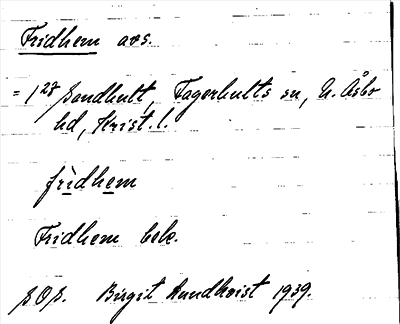 Fridhem avs.
= 1²⁷ Sandhult, Fagerhults sn, N. Åsbo
hd, Krist. l.
frìdhem
Fridhem bek.
SOS. Birgit Lundkvist 1939.